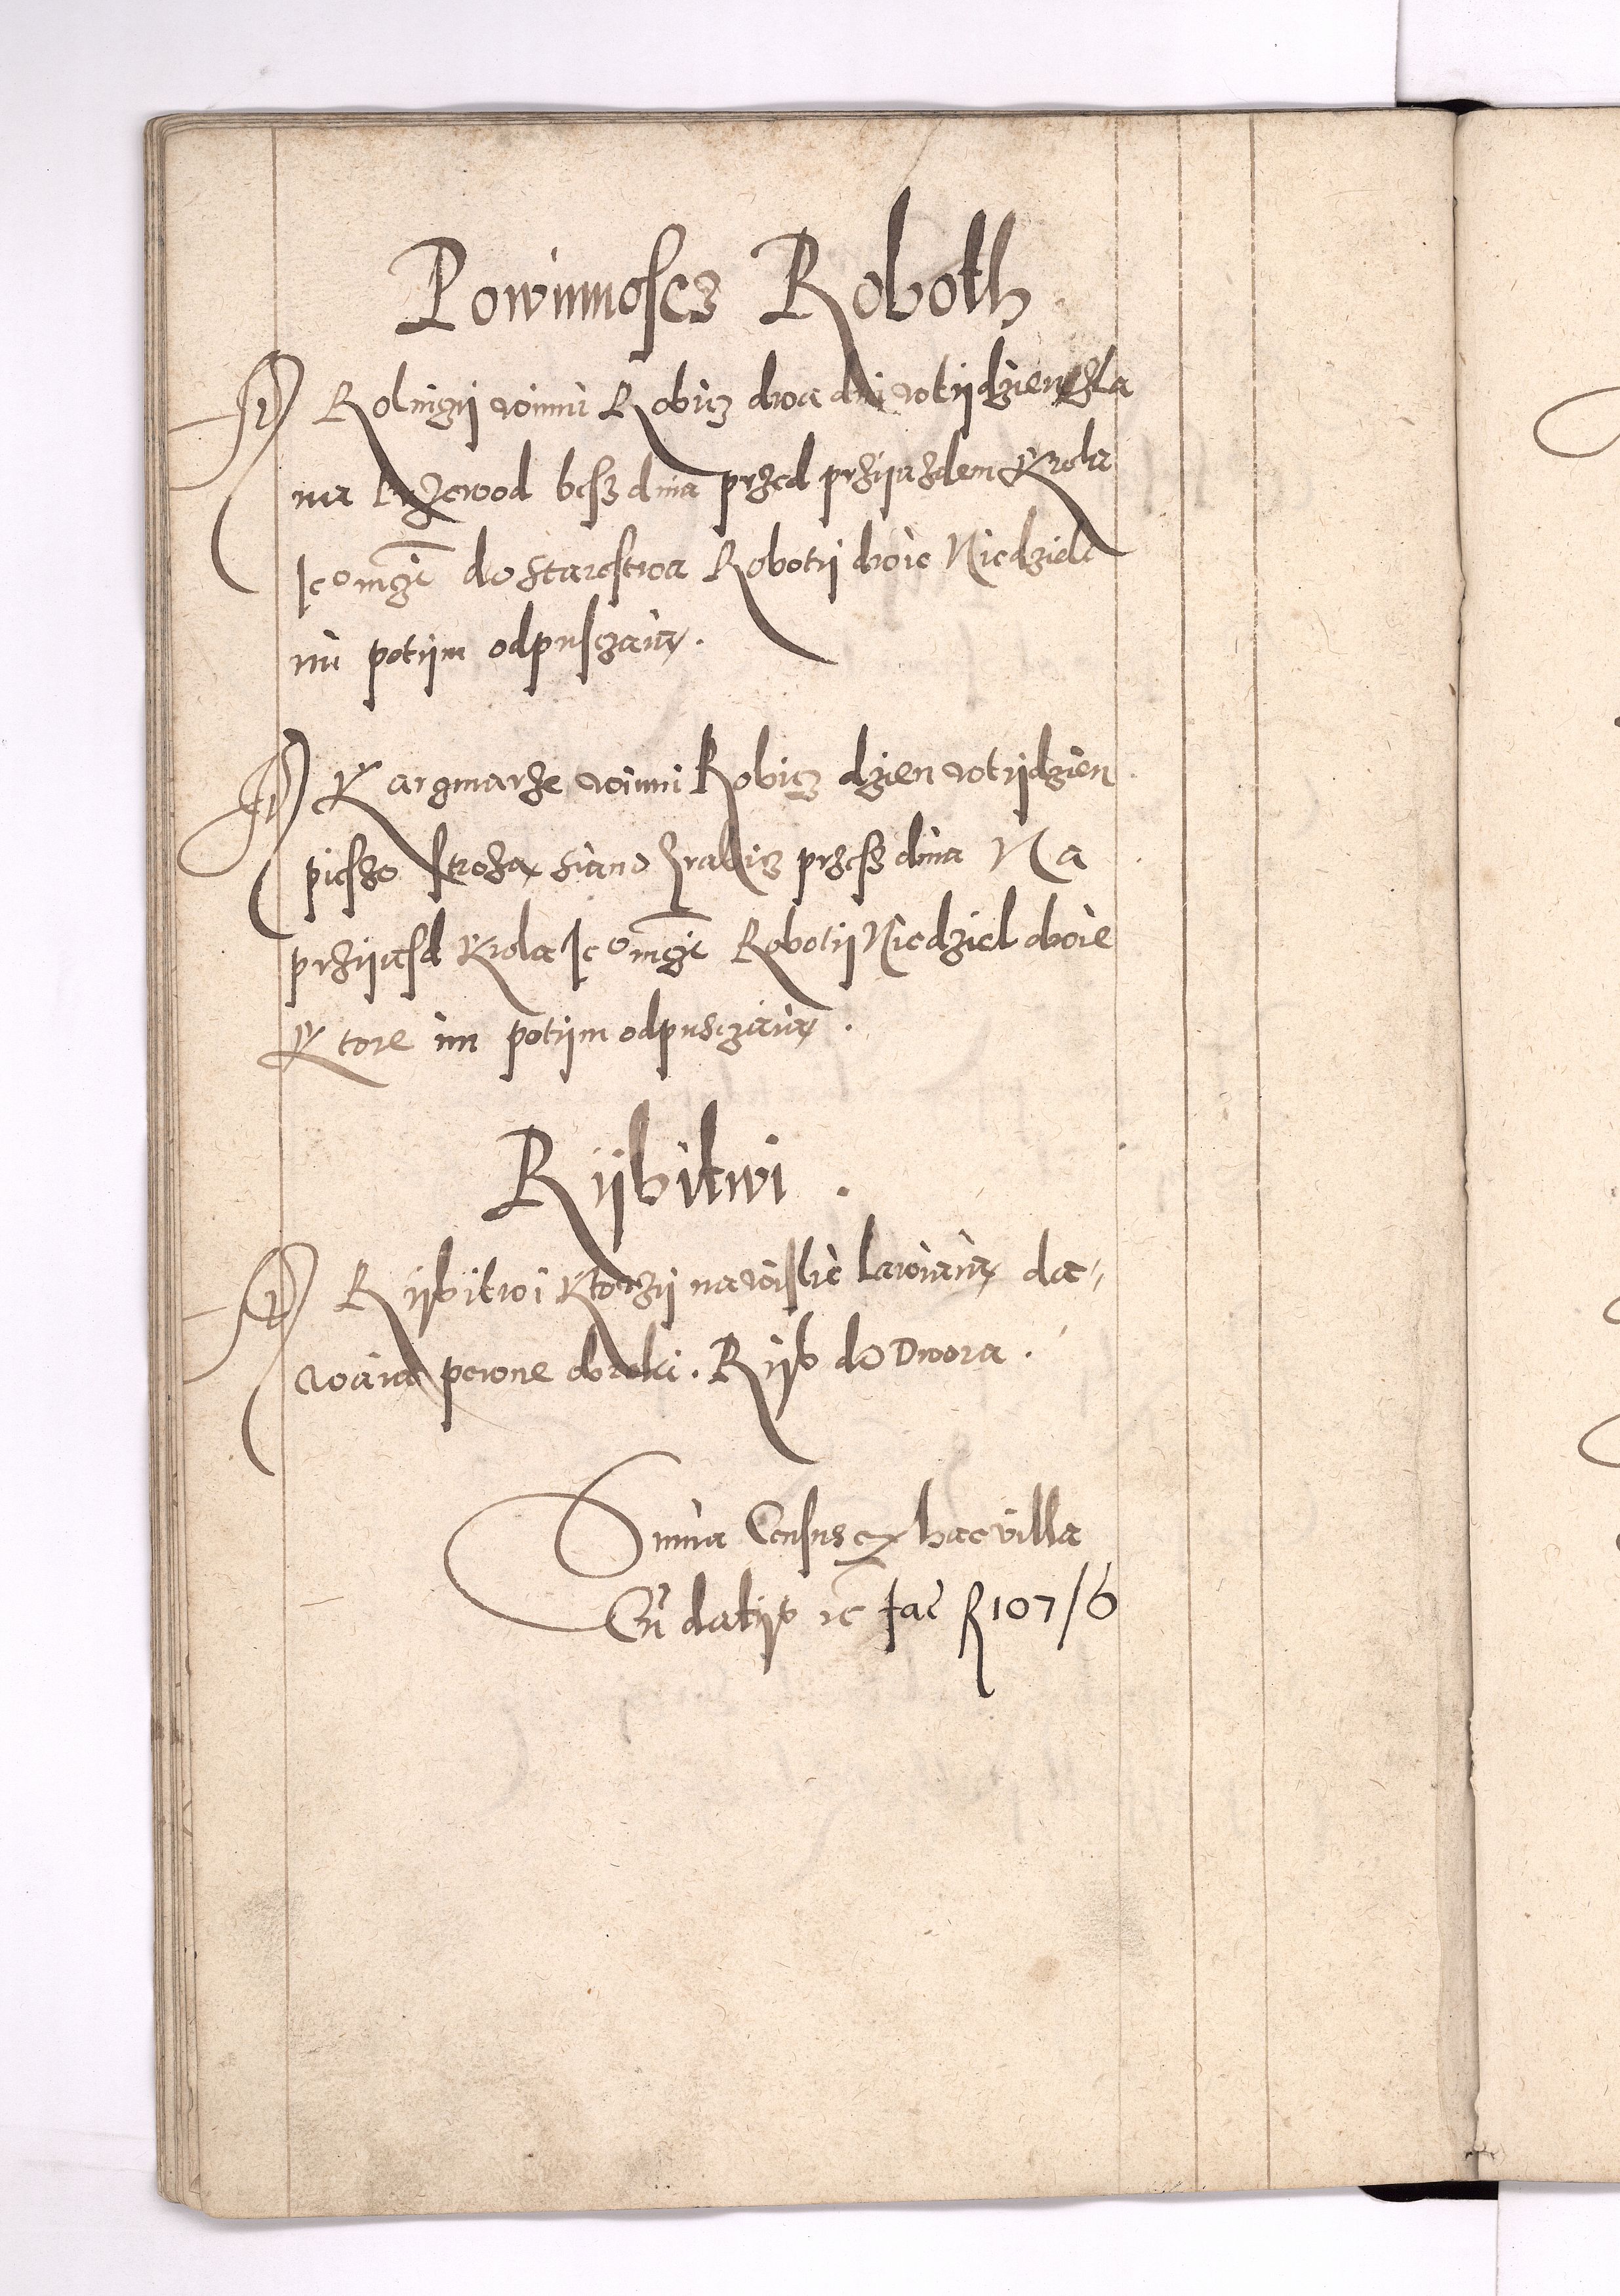 Powinnoscz Roboth
Rolniczÿ winni Robicz dwa dni wtÿdzien
na przewod besz dnia przed przÿiazdem Krola
Je° mczi do Starostwa Robotÿ dwie Niedzieli
im potÿm odpusczaią.
Karczmarze winni Robicz dzien wtÿdzien
pieszo strożą siano Grabicz przesz dnia Na
przÿiasd Krola Je° mczi Robotÿ Niedziel dwie
Ktore im potÿm odpusczaią.
Rÿbitwi.
Rÿbitwi Ktorzÿ nawislie lawiaią da„
waią pewne obroki. Rÿb do Dwora.
Suma Census ex hac villa
Cu datÿs rc fac R 107/6